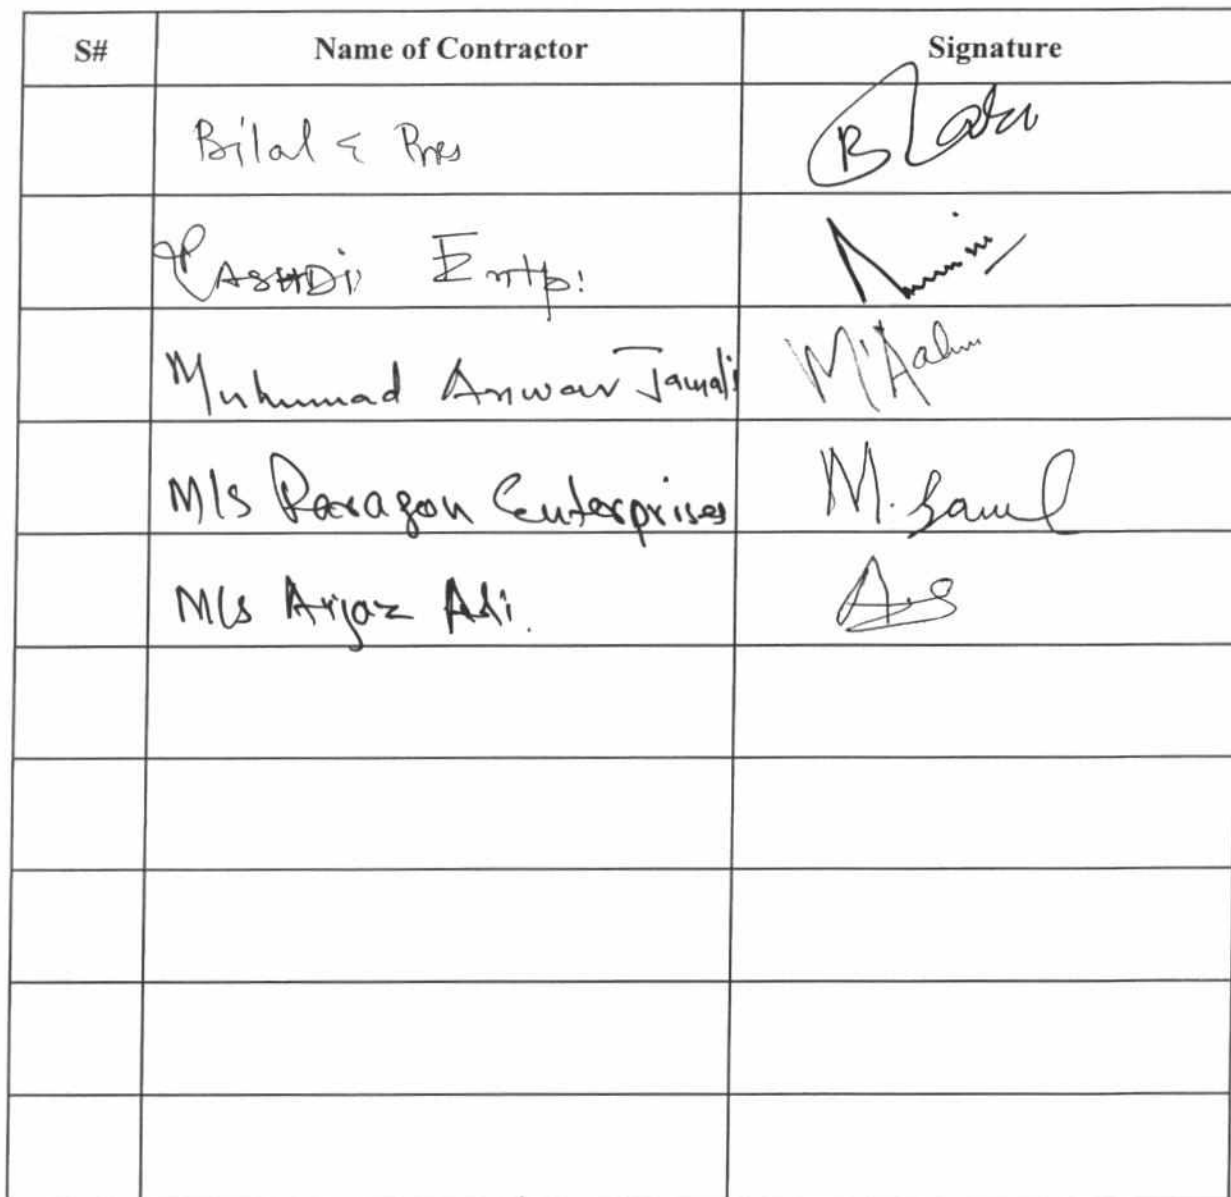 S# Name of Contractor Signature
Bilal & Bros
RASHDI Entp:
Muhummad Anwar Jamali
M/s Paragon Enterprises M. Samul
M/s Aijaz Ali.